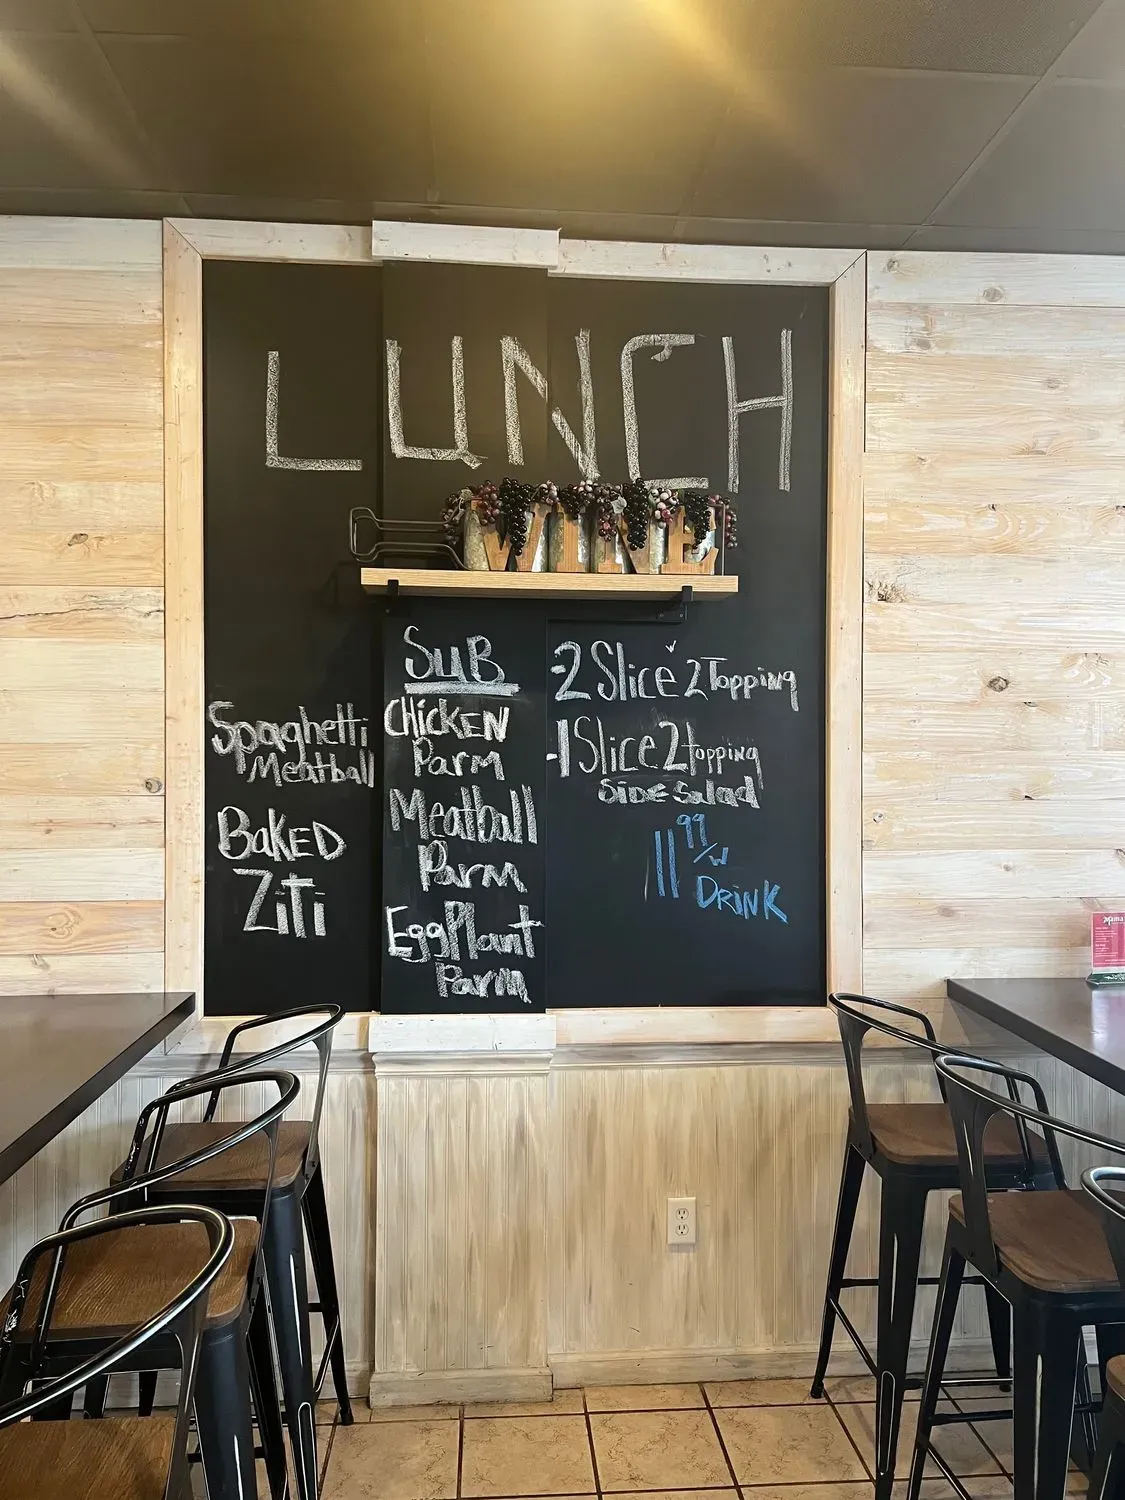 LUNCH
WINE
Spaghetti
Meatball
BAKED
ZiTi
SUB
CHicKEN
Parm
Meatball
Parm
EggPlant
Parm
-2 Slice 2 Topping
-1 Slice 2 topping
SiDE Salad
11 99/w
DRiNK